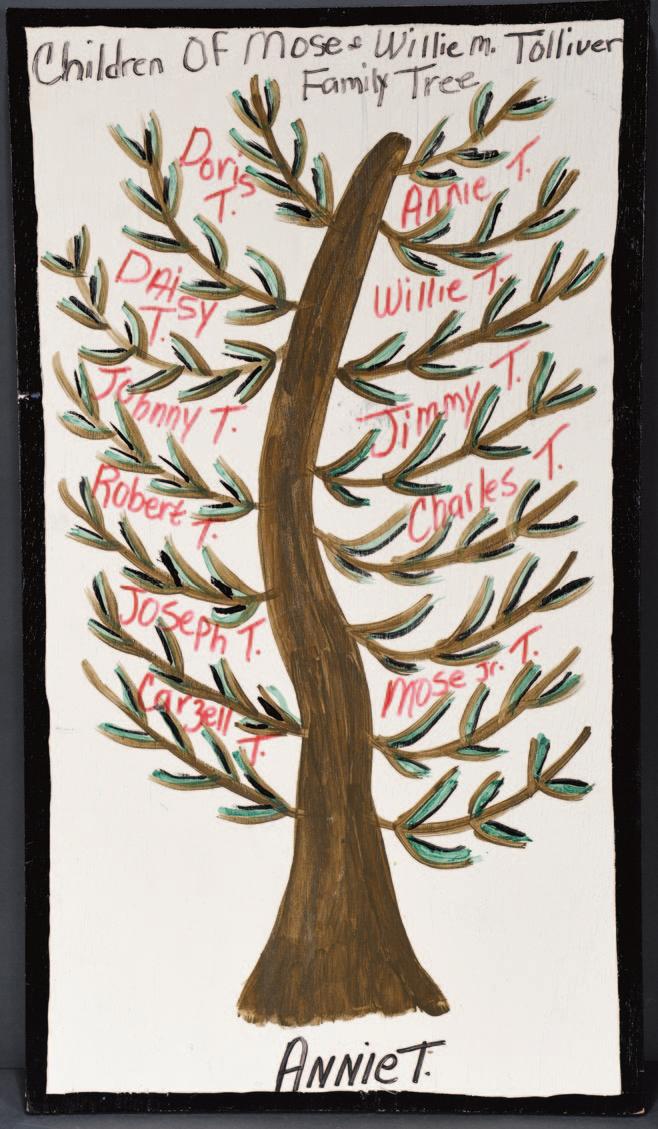 Children Of Mose & Willie M. Tolliver
Family Tree
Doris
T.
Annie T.
Daisy
T.
Willie T.
Johnny T.
Jimmy T.
Robert T.
Charles T.
Joseph T.
Mose Jr. T.
Carzell
T.
Annie T.